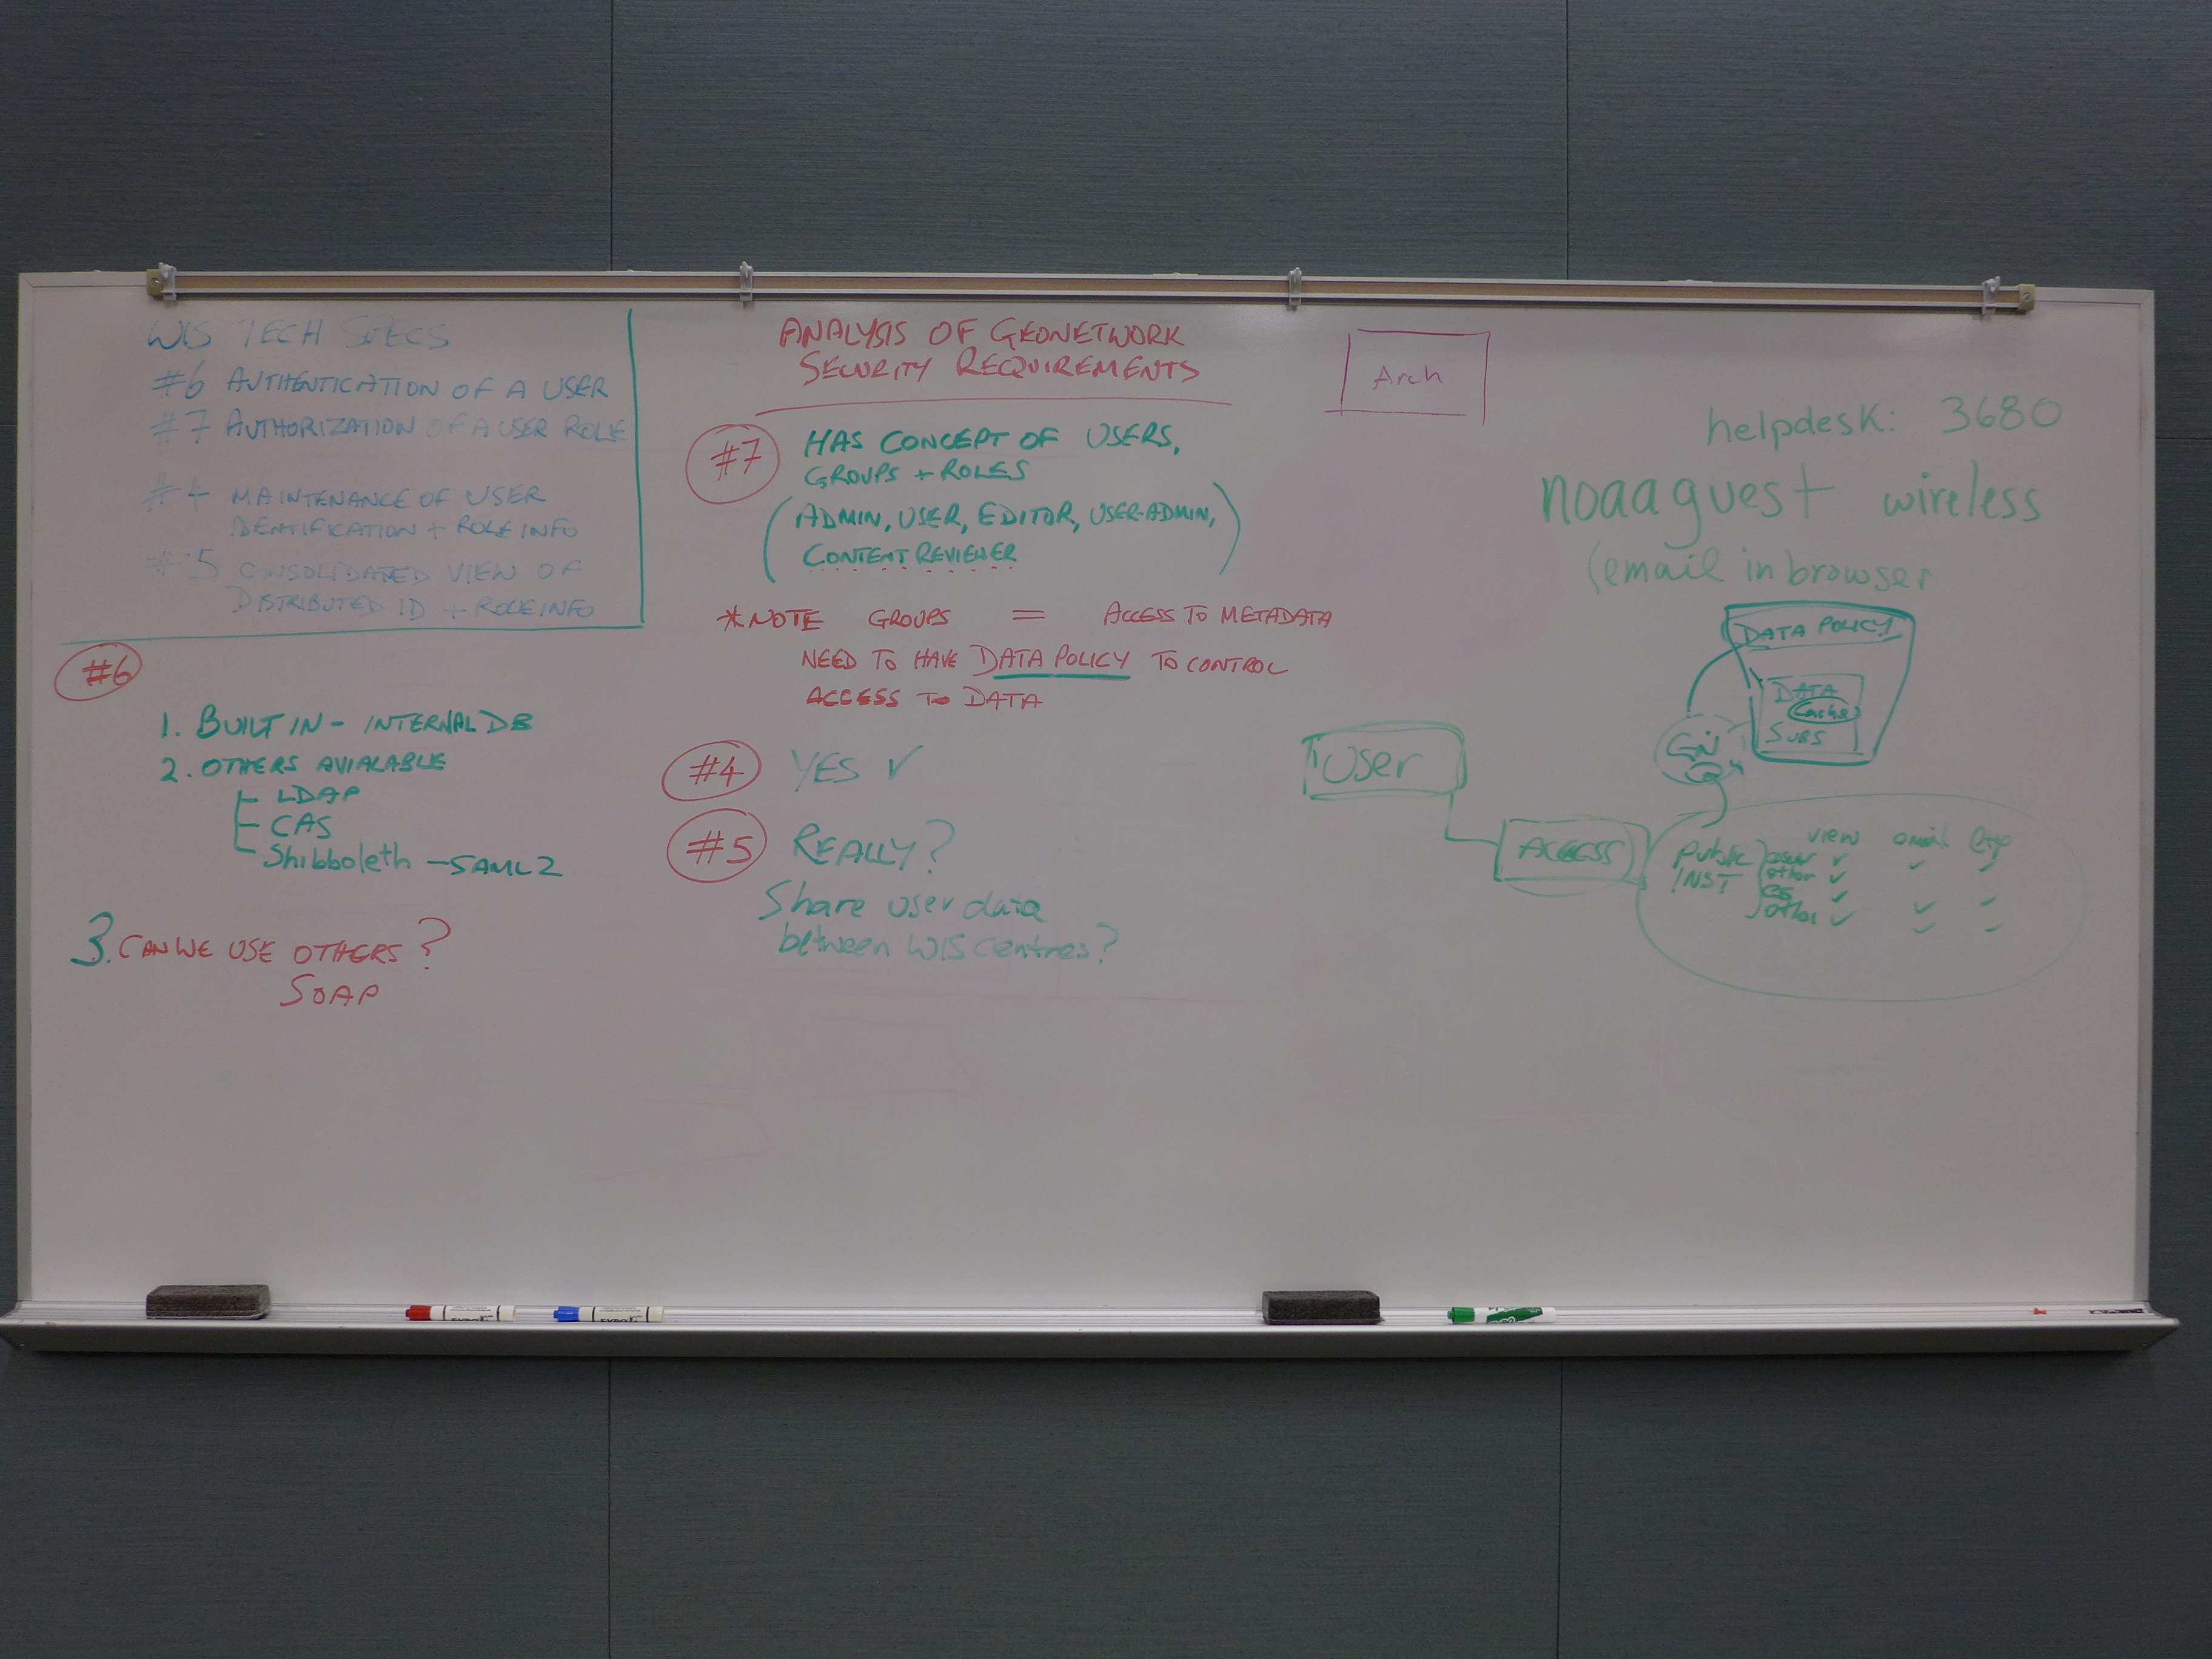 WIS TECH SPECS
#6 AUTHENTICATION OF A USER
#7 AUTHORIZATION OF A USER ROLE
#4 MAINTENANCE OF USER
IDENTIFICATION + ROLE INFO
#5 CONSOLIDATED VIEW OF
DISTRIBUTED ID + ROLE INFO
#6
1. BUILT IN - INTERNAL DB
2. OTHERS AVIALABLE
LDAP
CAS
Shibboleth - SAML 2
3. CAN WE USE OTHERS?
SOAP
ANALYSIS OF GEONETWORK
SECURITY REQUIREMENTS
#7 HAS CONCEPT OF USERS,
GROUPS + ROLES
(ADMIN, USER, EDITOR, USER-ADMIN,
CONTENT REVIEWER)
*NOTE GROUPS = ACCESS TO METADATA
NEED TO HAVE DATA POLICY TO CONTROL
ACCESS TO DATA
#4 YES ✓
#5 REALLY?
Share user data
between WIS centres?
Arch
helpdesk: 3680
noaaguest wireless
(email in browser
DATA POLICY
DATA
Cache
SUBS
GN
User
ACCESS
view
Public
INST
other ✓
other ✓